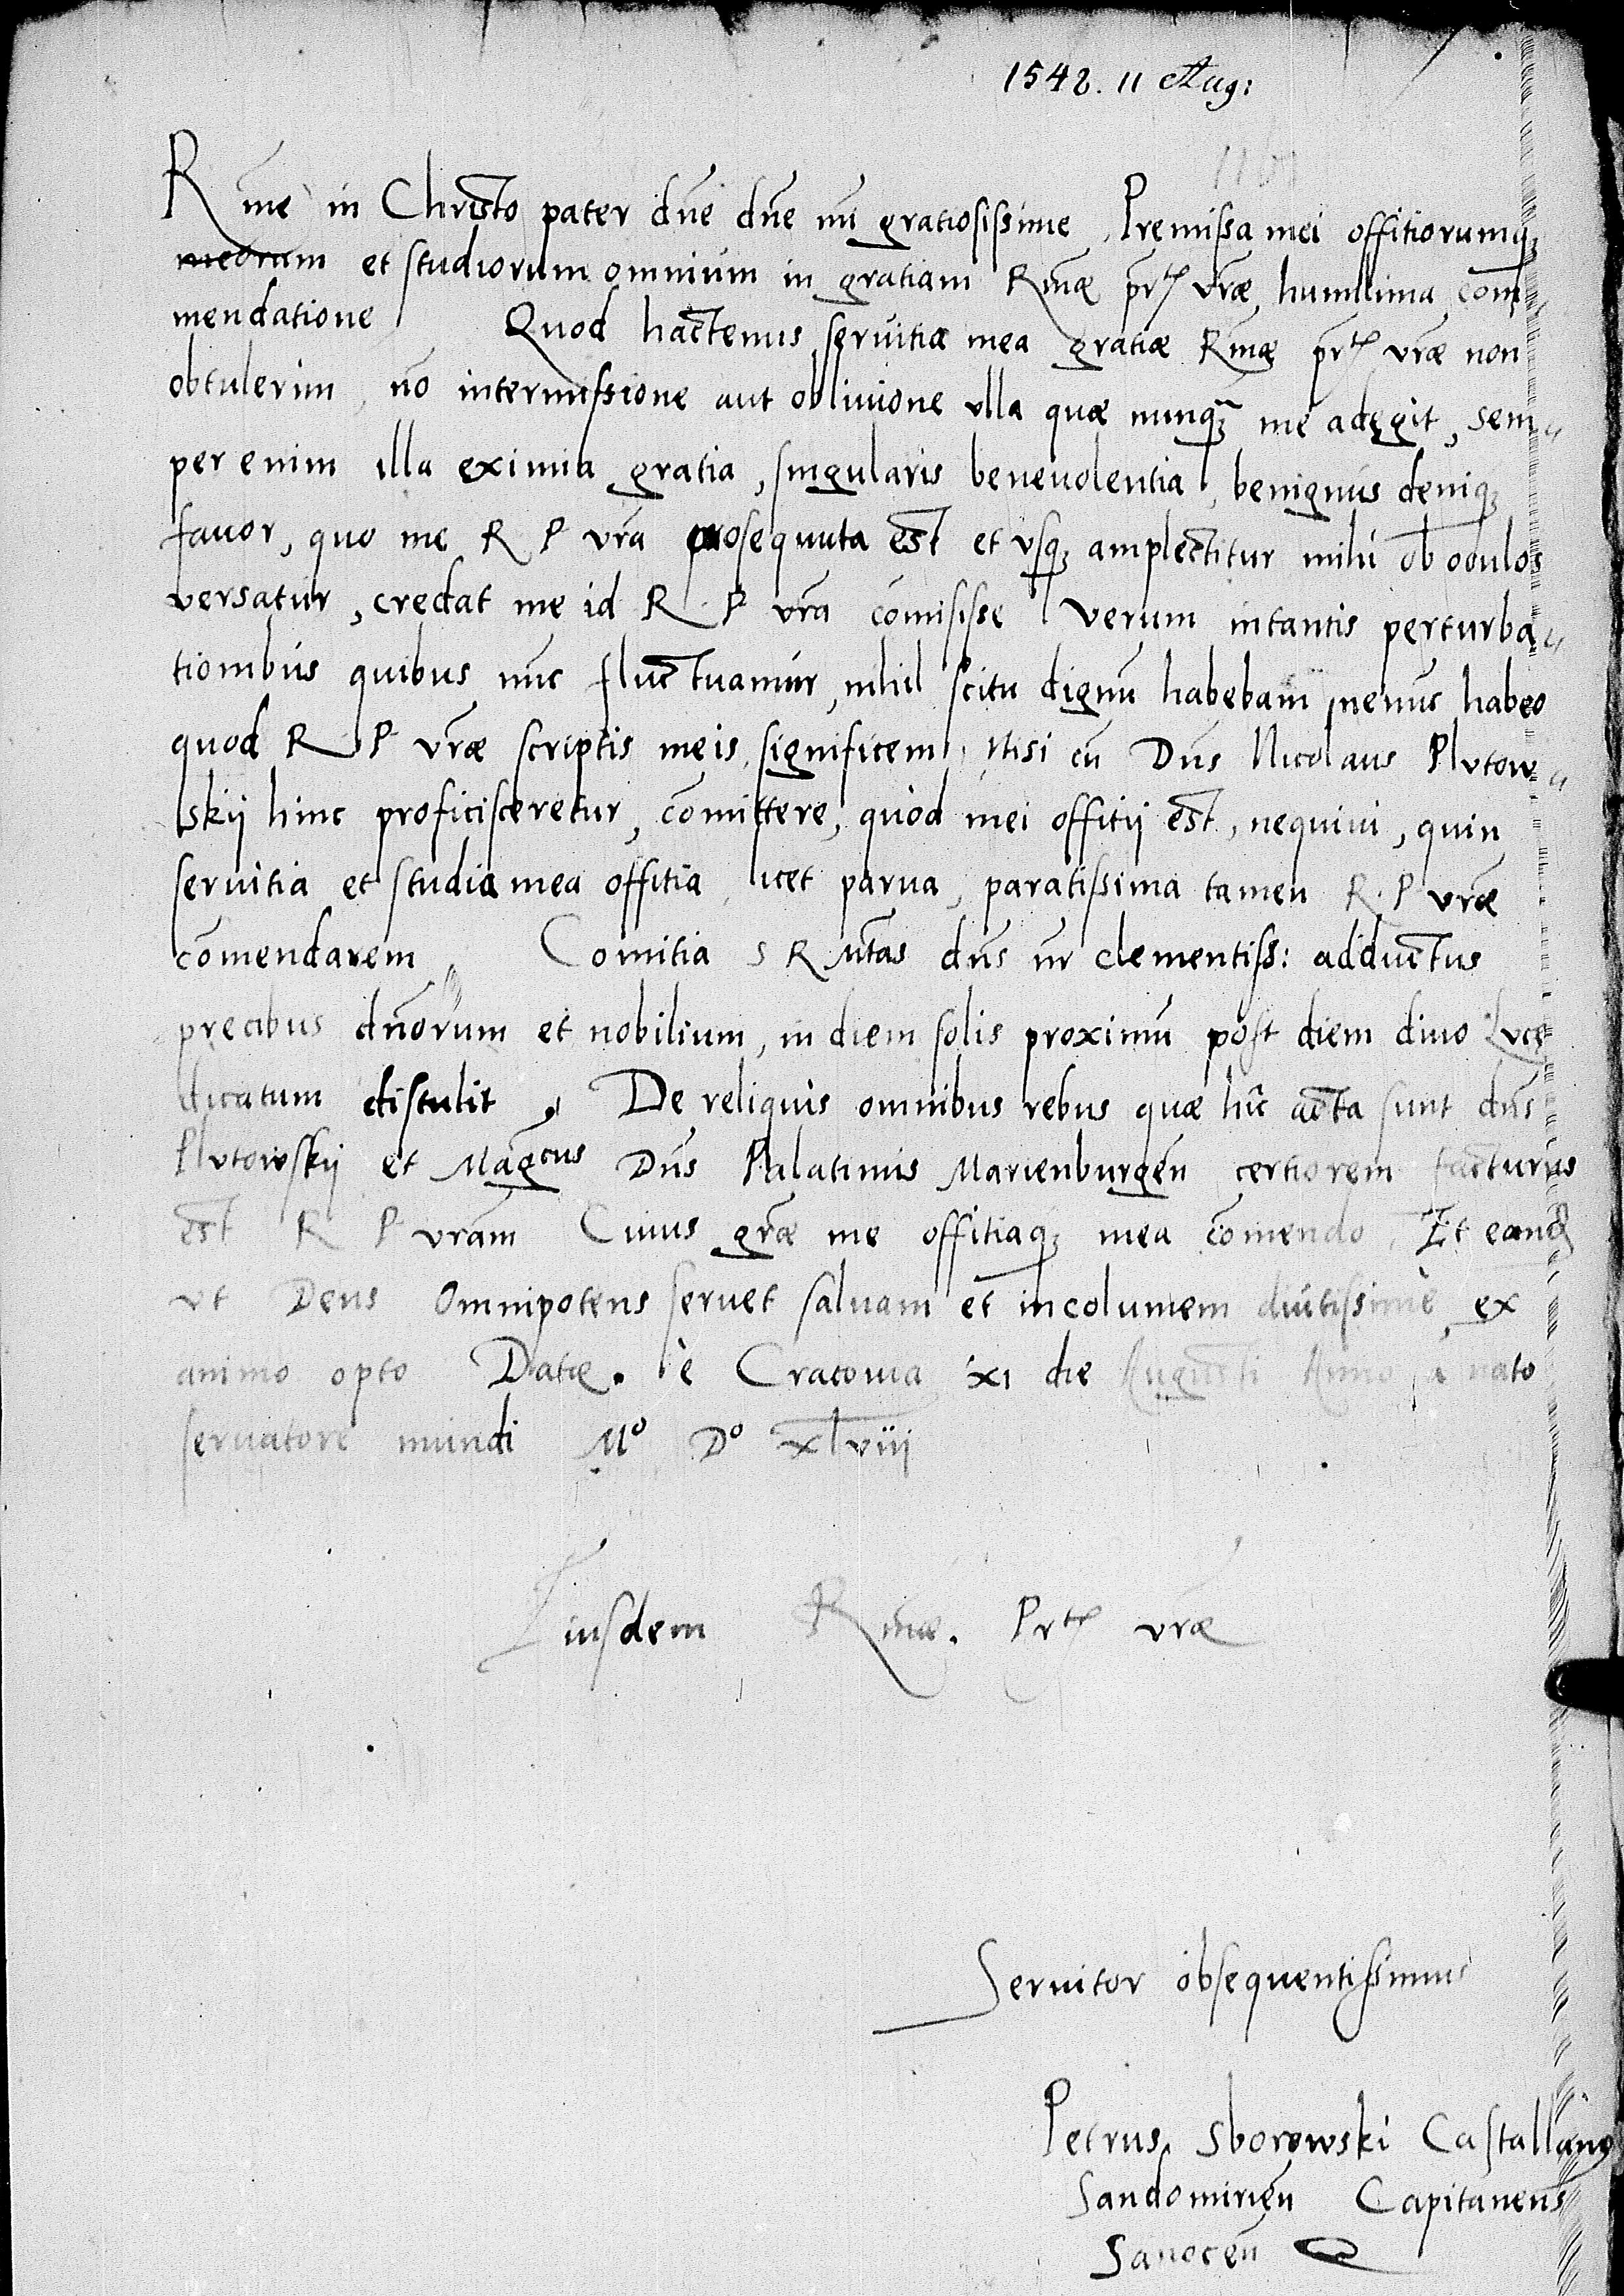 1548. 11 Aug:
Rme in Christo pater dne dne mi gratiosissime, Premissa mei offitiorumq;
meorum et studiorum omnium in gratiam Rmae prtis vrae humilima com„
mendatione Quod hactenus servitia mea gratiae Rmae prtis vrae non
obtulerim, no intermissione aut oblivione ulla quae nunq; me adegit, sem„
per enim illa eximia gratia, singularis benevolentia, benignus deniq;
favor, quo me R P vra prosequuta est et usq; amplectitur mihi ob oculos
versatur, credat me id R P vra comisisse Verum in tantis perturba„
tionibus quibus nunc fluctuamur, nihil scitu dignu habebam, ne nunc habeo
quod R P vrae scriptis meis, significem, Nisi cu Dns Nicolaus Plutow„
skij hinc proficisceretur, comittere, quod mei offitij est, nequivi, quin
servitia et studia mea offitia, licet parva, paratissima tamen R. P vrae
comendarem, Comitia S R Mtas dns nr clementiss: adductus
precibus dnorum et nobilium, in diem solis proximu post diem divo Luce
dicatum distulit, De reliquis omnibus rebus quae hic acta sunt dns
Plutowskij et Magcus Dns Palatinus Marienburgen certiorem facturus
est R P vram Cuius grae me offitiaq; mea comendo, Et eand
ut Deus Omnipotens servet salvam et incolumem diutissime, ex
animo opto Datae. e Cracovia xi die Augusti Anno a nato
servatore mundi Mo Do xlviij
Eiusdem Rmae. Prtis vrae
Servitor obsequentissimus
Petrus Sborowski Castallanus
Sandomirien Capitaneus
Sanocen